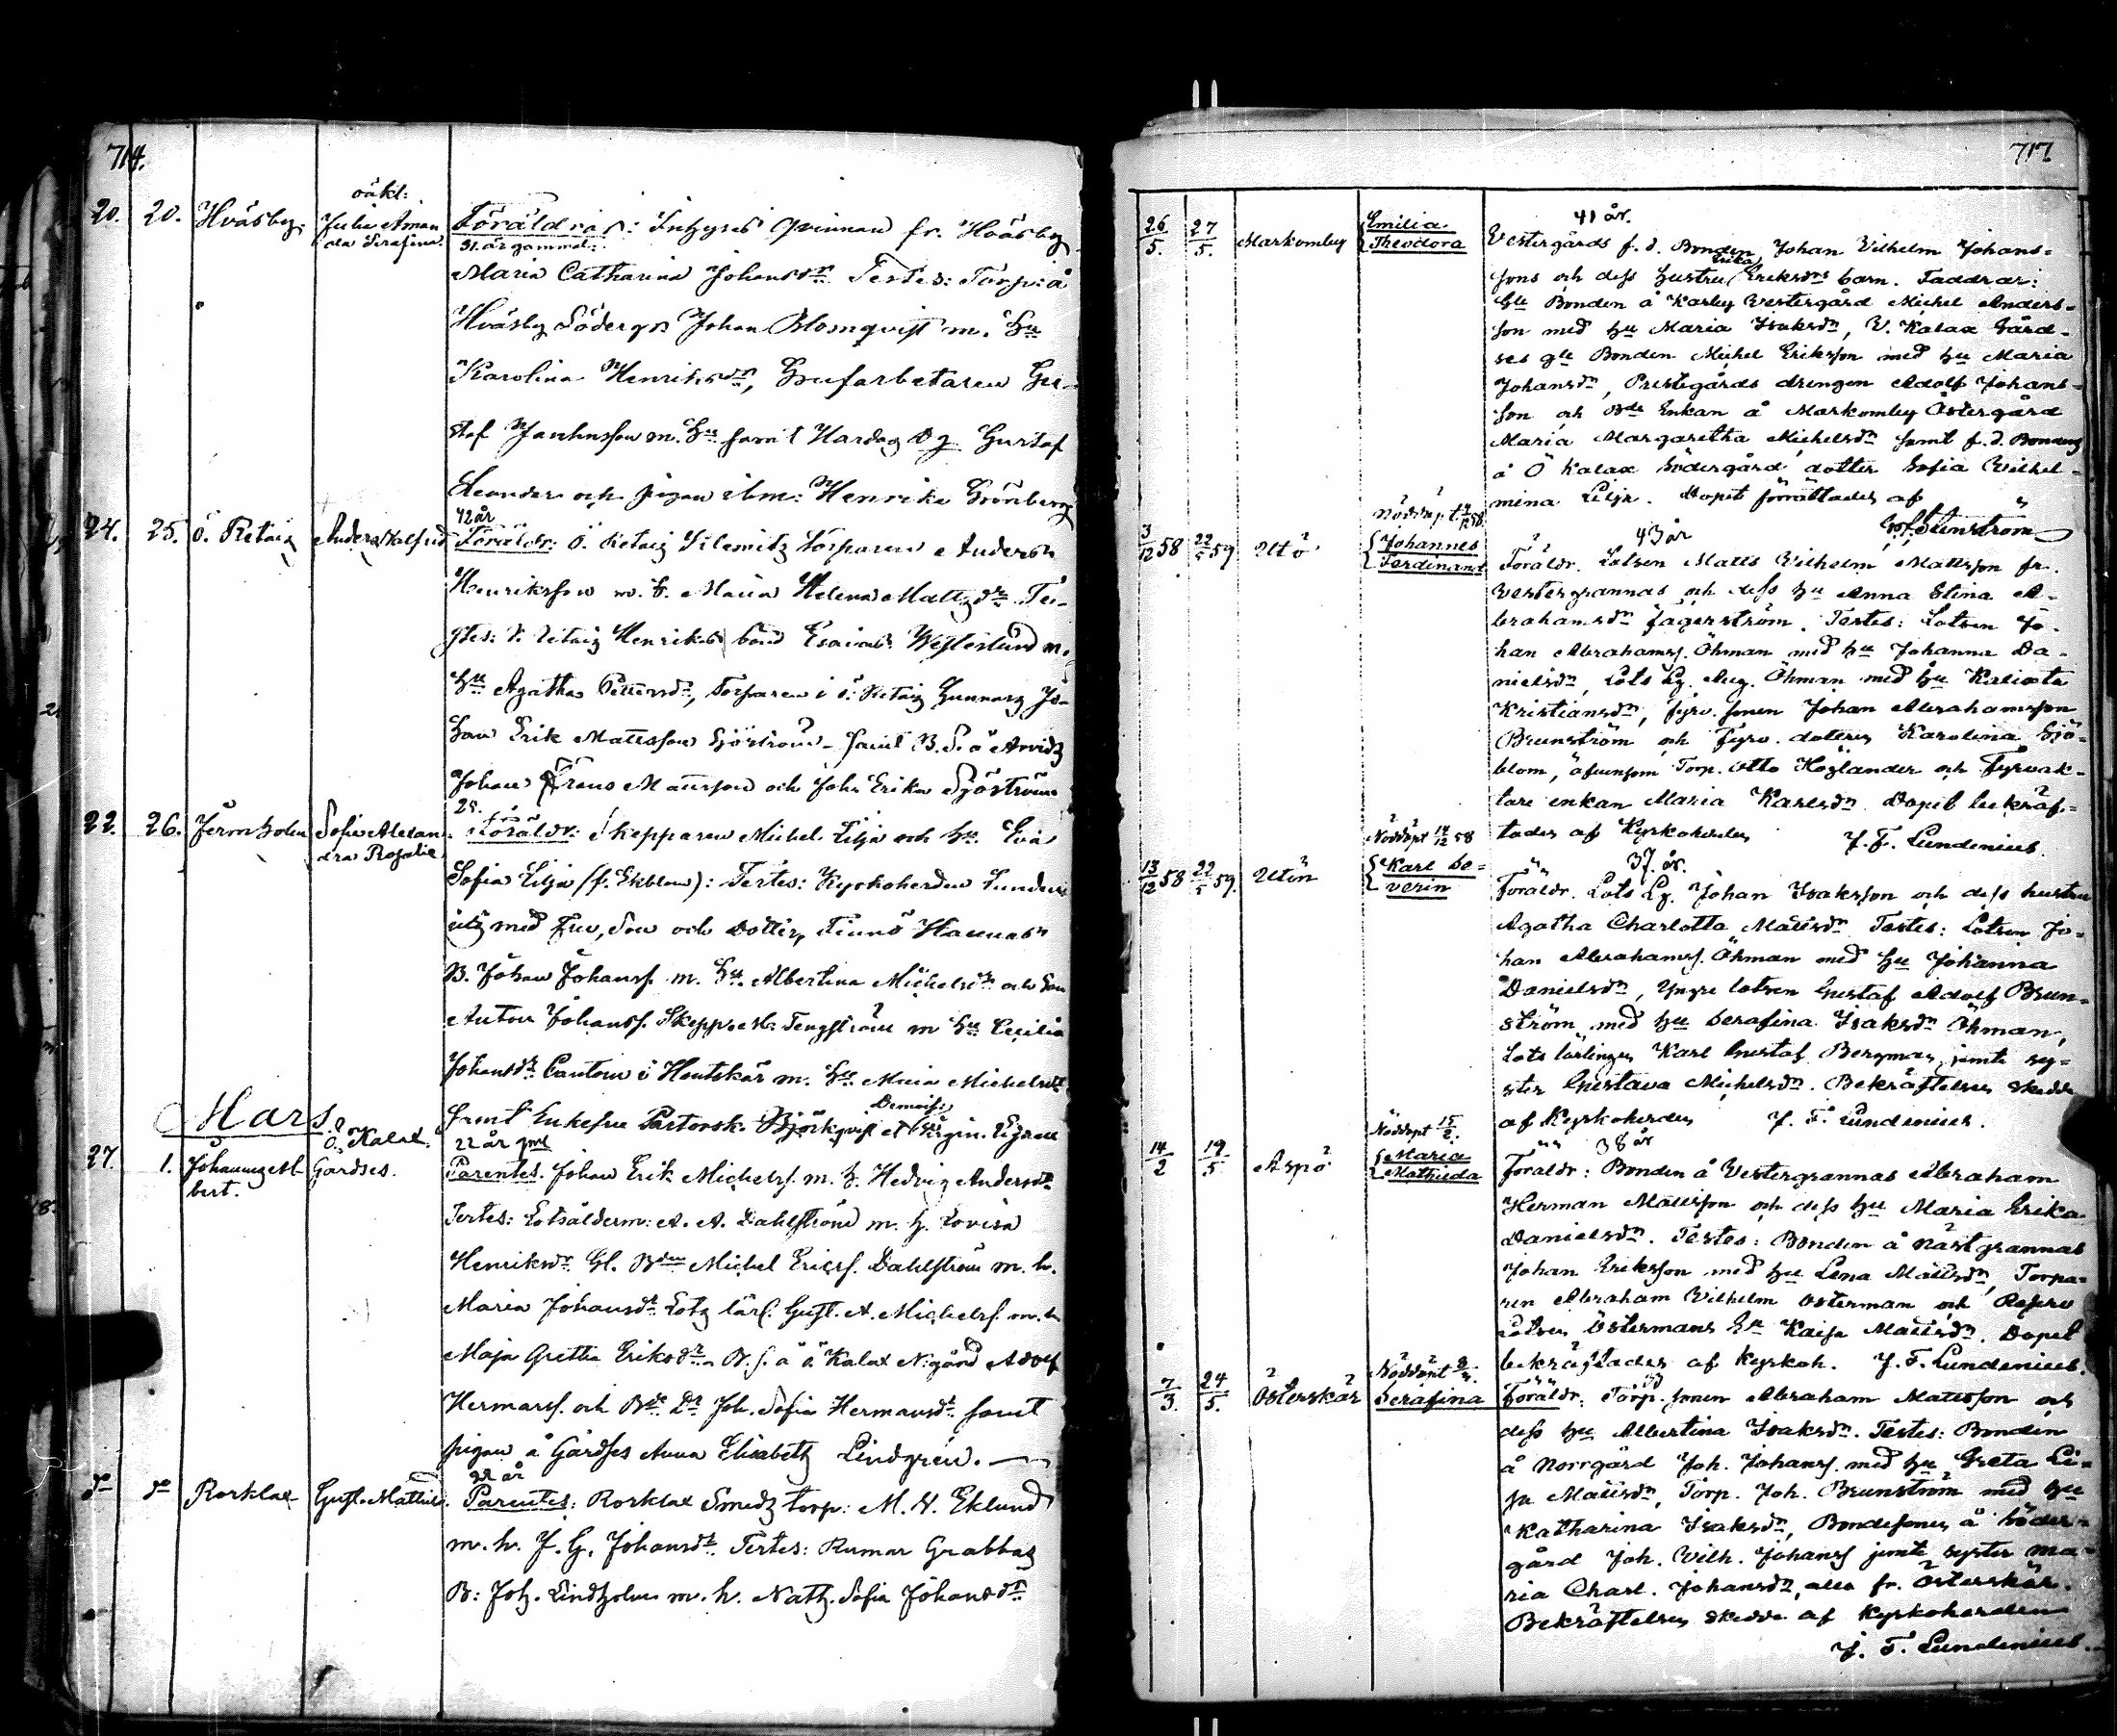 714.
oäkl:
20. 20. Hväsby. Julia Aman Föräldrar: Inhyses qvinnan fr. Hväsby
da Serafina. 31. år gammal:
Maria Catharina Johansdr. Testes: Torp: å
Hväsby Södergs Johan Blomqvist m. Hu
Karolina Henriksdr, Grufarbetaren Gu-
staf Janhnsson m. Hu samt Hardag Dg Gustaf
Leander och pigan ibm: Henrika Grönberg
42 år
24. 25. Ö. Retaig Anders Walfrid Föräldr: Ö. Retaig Torparen Anders
Henriksson m. h. Maria Helena Mattsdr. Te-
stes: Retaig Henriks bond Esaias Westerlund m.
Hu Agatha Pettersdr, Torparen i Ö. Retaig Gunnarz Jo-
han Erik Mattsson Sjöström samt B. S. å Arvidz
Johan Frans Mattsson och Joh: Erika Sjöström
28. år
22. 26. Jermholm Sofia Alexan- Föräldr: Skepparen Michel Lilja och Hu Eva
dra Rosalie
Sofia Lilja (f. Ekblom): Testes: Kyrkoherden Lunden-
ius med Fru, Son och Dotter, Finnö Hannas
B. Johan Johanss. m. Hu Albertina Michelsdr och Son
Anton Johanss. Skepps Tengström m Hu Cecilia
Johansdr. Cantorn i Houtskär m. Hu Maria Michelsdr
Mars.
Demois:
samt Enkefru Pastorsk. Björkqvist
Ö. Kalax 22 år gml
27. 1. Johannes Al- Gårdses. Parentes. Johan Erik Michelss. m. h. Hedvig Andersdr
bert.
Testes: Lotsålderm: A. A. Dahlström m. h. Lovisa
Henriksdr. Gl. Bden Michel Ericss. Dahlström m. h.
Maria Johansdr. Lots lärl. Gust. A. Michelss. m. h
Maja Gretha Eriksdr. B. s. å Ö Kalax N:gård Adolf
Hermanss. och Bde Dr Joh. Sofia Hermansdr. samt
pigan å Gårdses Anna Elisabeth Lindgren.
22 år
do do Rorklax Gust. Mathild. Parentes: Rorklax Smedz torp: M. W. Eklund
m. h. J. G. Johansdr. Testes: Rumar Grabbas
B: Joh. Lindholm m. h. Nath. Sofia Johansdr
717
41 år.
26/5. 27/5. Markomby Emilia Theodora Vestergårds f. d. Bonden Johan Vilhelm Johans-
sons och dess hustru Erika Eriksdrs barn. Faddrar:
Gle Bonden å Karby Vestergård Michel Anders-
son med hu Maria Isaksdr, V. Kalax Gård-
ses gle Bonden Michel Eriksson med hu Maria
Johansdr, Prestegårds drengen Adolf Johans-
son och Bde Enkan å Markomby Östergård
Maria Margaretha Michelsdr samt f. d. Bondens
å Ö Kalax Södergård dotter Sofia Vilhel-
mina Lilja. Dopet förrättades af
Stenström
Nöddöpt 4/12 58
43 år
3/12 58 22/5 59 Utö Johannes Ferdinand Föräldr. Lotsen Matts Vilhelm Mattsson fr.
Vestergrannas och dess hu Anna Stina A-
brahamsdr Fagerström. Testes: Lotsen Jo-
han Abrahamss. Öhman med hu Johanna Da-
nielsdr, Lots Lg. Aug. Öhman med hu Kalixta
Kristiansdr, fyrv. sonen Johan Abrahamsson
Brunström och fyrv. dottern Karolina Sjö-
blom, äfvensom Torp. Otto Höglander och Fyrvak-
tare enkan Maria Karlsdr. Dopet bekräf-
tades af Kyrkoherden J. F. Lundenius.
Nöddöpt 14/12 58
37 år.
13/12 58 22/5 59. Utön Karl Se-verin Föräldr. Lots Lg. Johan Isaksson och dess hustru
Agatha Charlotta Mattsdr. Testes: Lotsen Jo-
han Abrahamss. Öhman med hu Johanna
Danielsdr, Yngre lotsen Gustaf Adolf Brun-
ström med hu Serafina Isaksdr Öhman,
Lots lärlingen Karl Gustaf Bergman jemte sy-
ster Gustava Michelsdr. Bekräftelsen skedde
af Kyrkoherden J. F. Lundenius.
Nöddöpt 15/2.
38 år
14/2 19/5 Aspö Maria Mathilda Föräldr: Bonden å Vestergrannas Abraham
Herman Mattsson och dess hu Maria Erika
Danielsdr. Testes: Bonden å Nästgrannas
Johan Eriksson med hu Lena Mattsdr, Torpa-
ren Abraham Vilhelm Österman och Reserv
Lotsen Östermans Hu Kajsa Mattsdr. Dopet
bekräftades af Kyrkoh. J. F. Lundenius.
Nöddöpt 8/3.
7/3. 24/5. Österskär Serafina Föräldr: Torp. sonen Abraham Mattsson och
dess hu Albertina Isaksdr. Testes: Bonden
å Norrgård Joh. Johanss. med hu Greta Li-
sa Mattsdr, Torp. Joh. Brunström med hu
Katharina Isaksdr, Bondesonen å Söder-
gård Joh. Wilh. Johanss jemte syster Ma-
ria Charl. Johansdr, alla fr. Österskär.
Bekräftelsen skedde af Kyrkoherden
J. F. Lundenius.